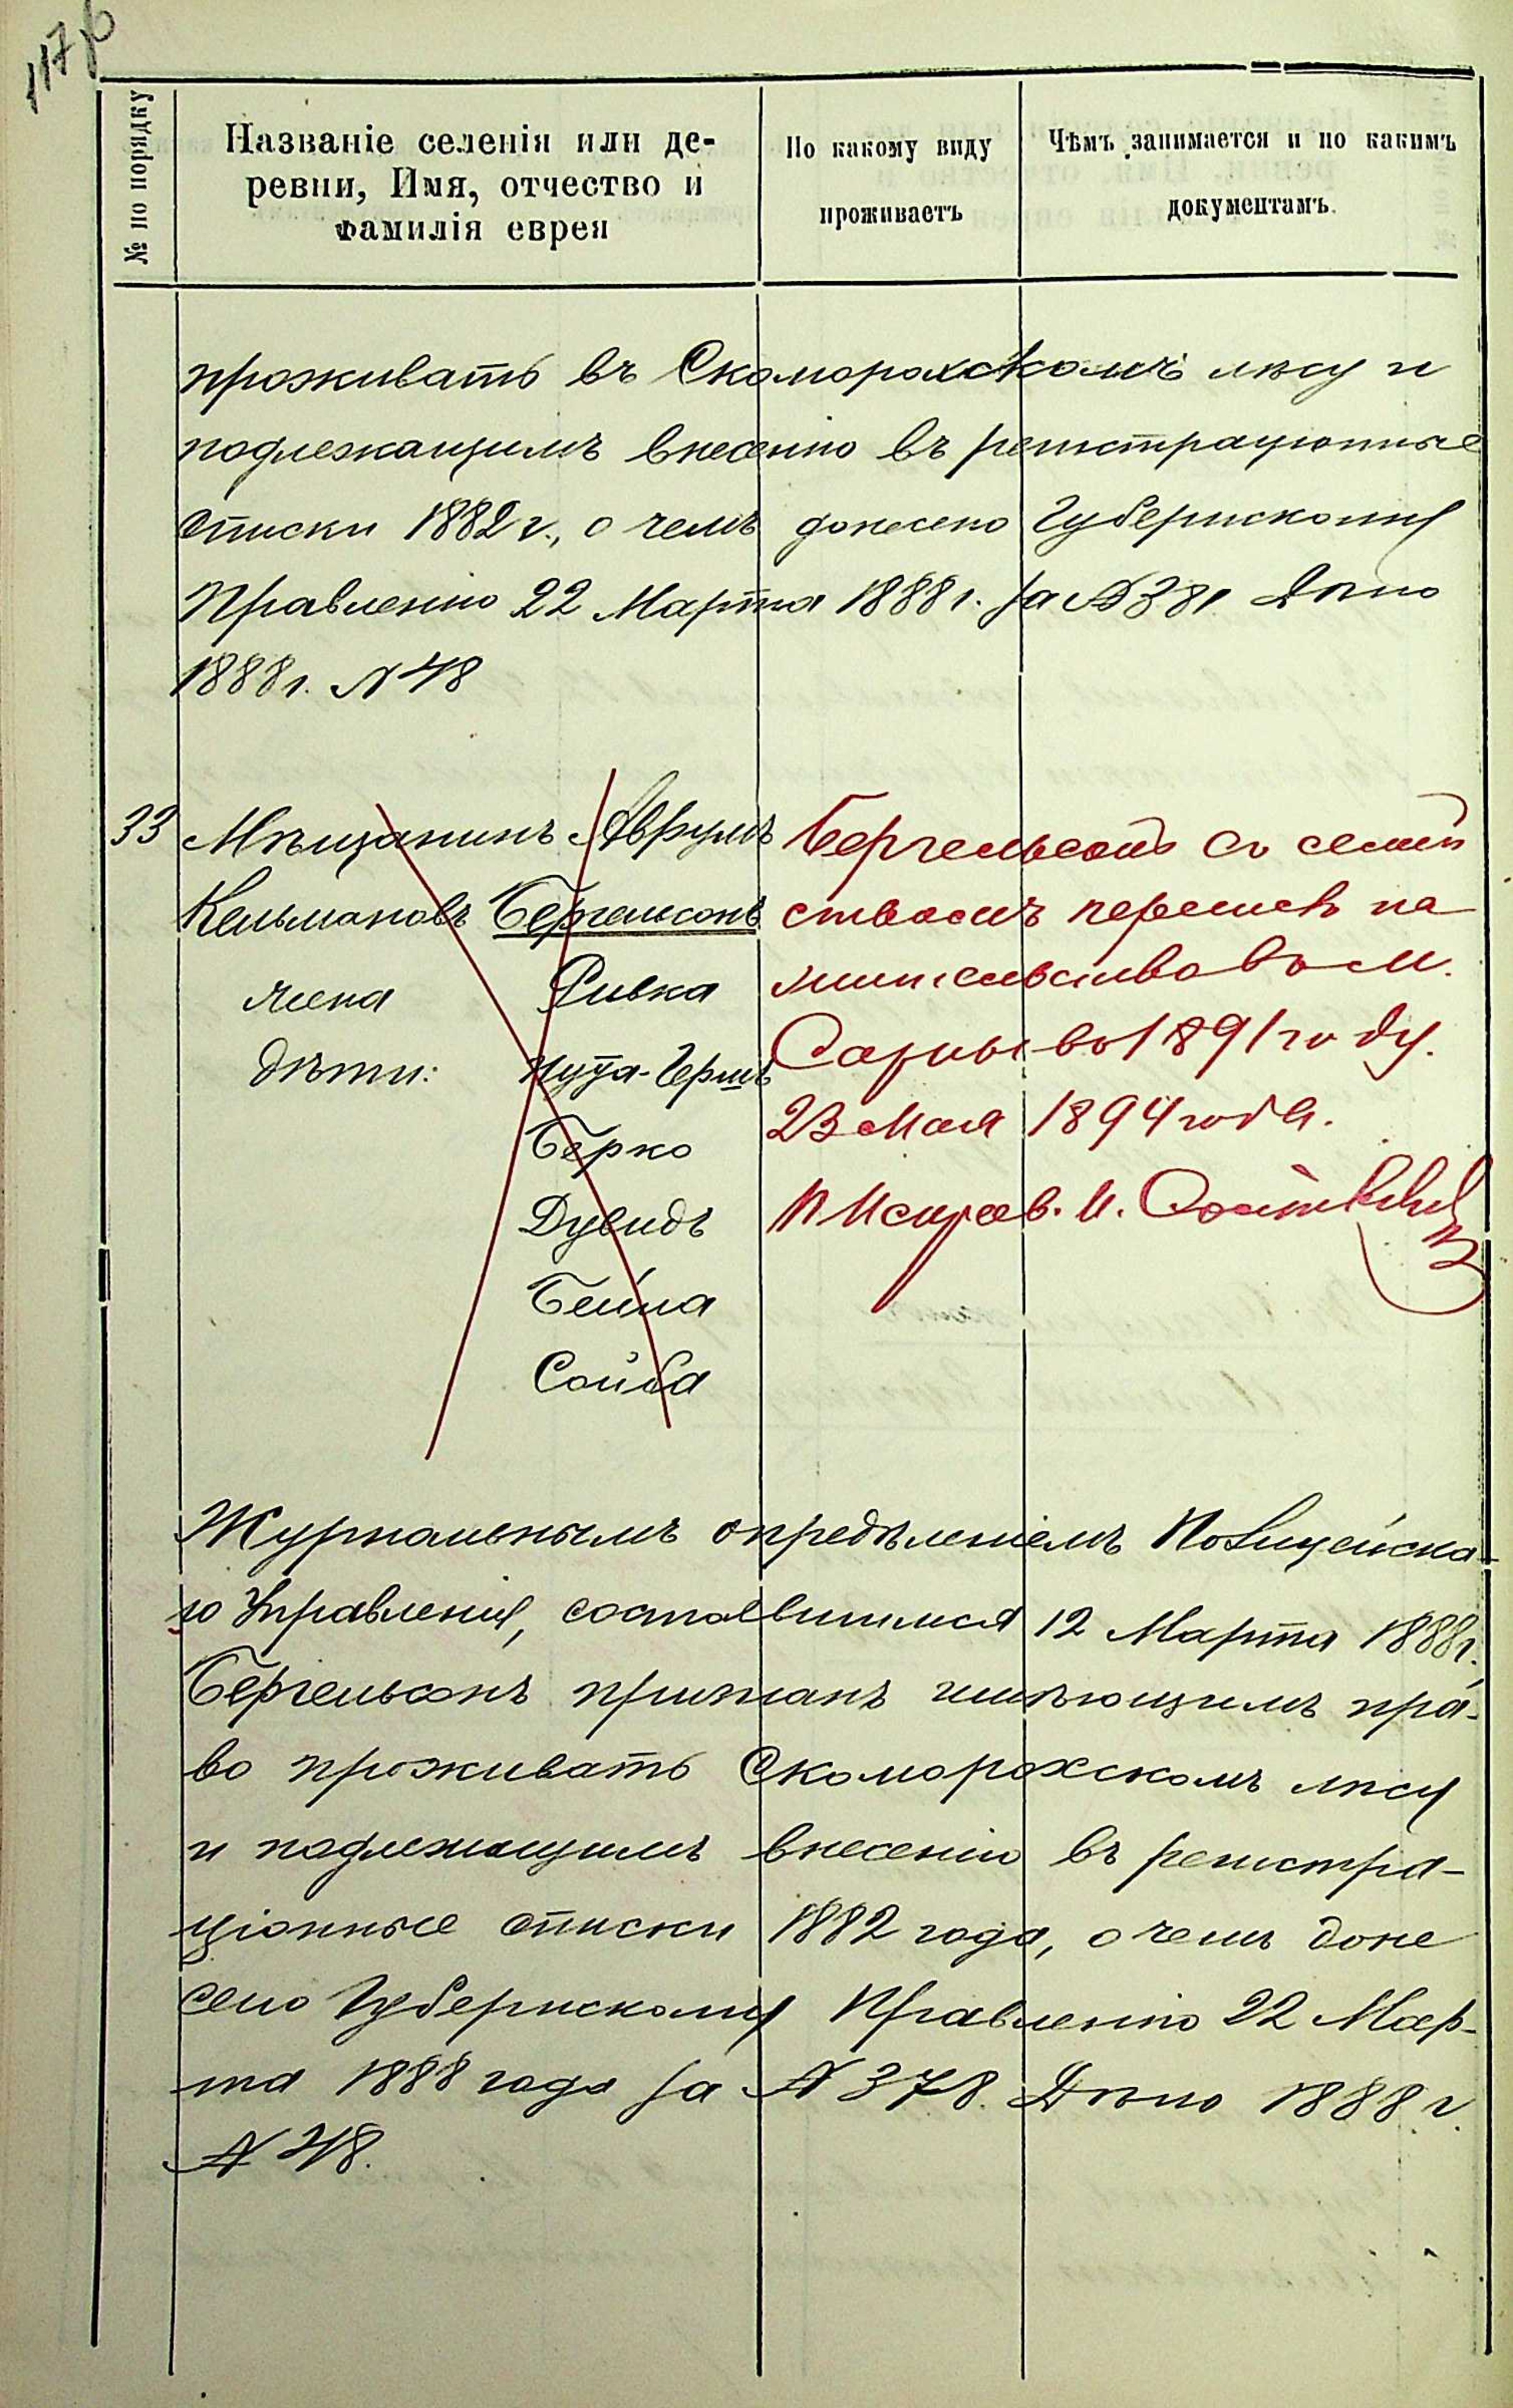 117 б
№ по порядку
Названіе селенія или де-
ревни, Имя, отчество и
фамилія еврея
По какому виду
проживаетъ
Чѣмъ занимается и по какимъ
документамъ.
проживать въ Скоморохскомъ лѣсу и
подлежащимъ внесенію въ регистраціонные
списки 1882 г., о чемъ донесено Губернскому
Правленію 22 Марта 1888 г. за № 381 Дѣло
1888 г. N 48
33 Мѣщанинъ Аврумъ
Кельмановъ Бергельсонъ
жена Ривка
дѣти: Нута-Гершъ
Берко
Дувидъ
Бейла
Сойба
Бергельсонъ съ семей
ствомъ перешелъ на
жительство въ м.
Сарны въ 1891 году.
23 Мая 1894 года.
И. Исправ. И.
Журнальнымъ опредѣленіемъ Полицейска-
го Управленія, состоявшимся 12 Марта 1888 г.,
Бергельсонъ признанъ имѣющимъ пра-
во проживать Скоморохскомъ лѣсу
и подлежащимъ внесенію въ регистра-
ціонные списки 1882 года, о чемъ доне
сено Губернскому Правленію 22 Мар-
та 1888 года за N 378. Дѣло 1888 г.
N 48.